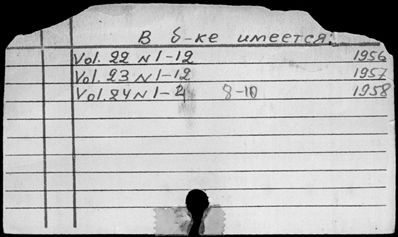 В б-ке имеется:
Vol. 22 N 1-12 1956
Vol. 23 N 1-12 1957
Vol. 24 N 1-4 8-10 1958